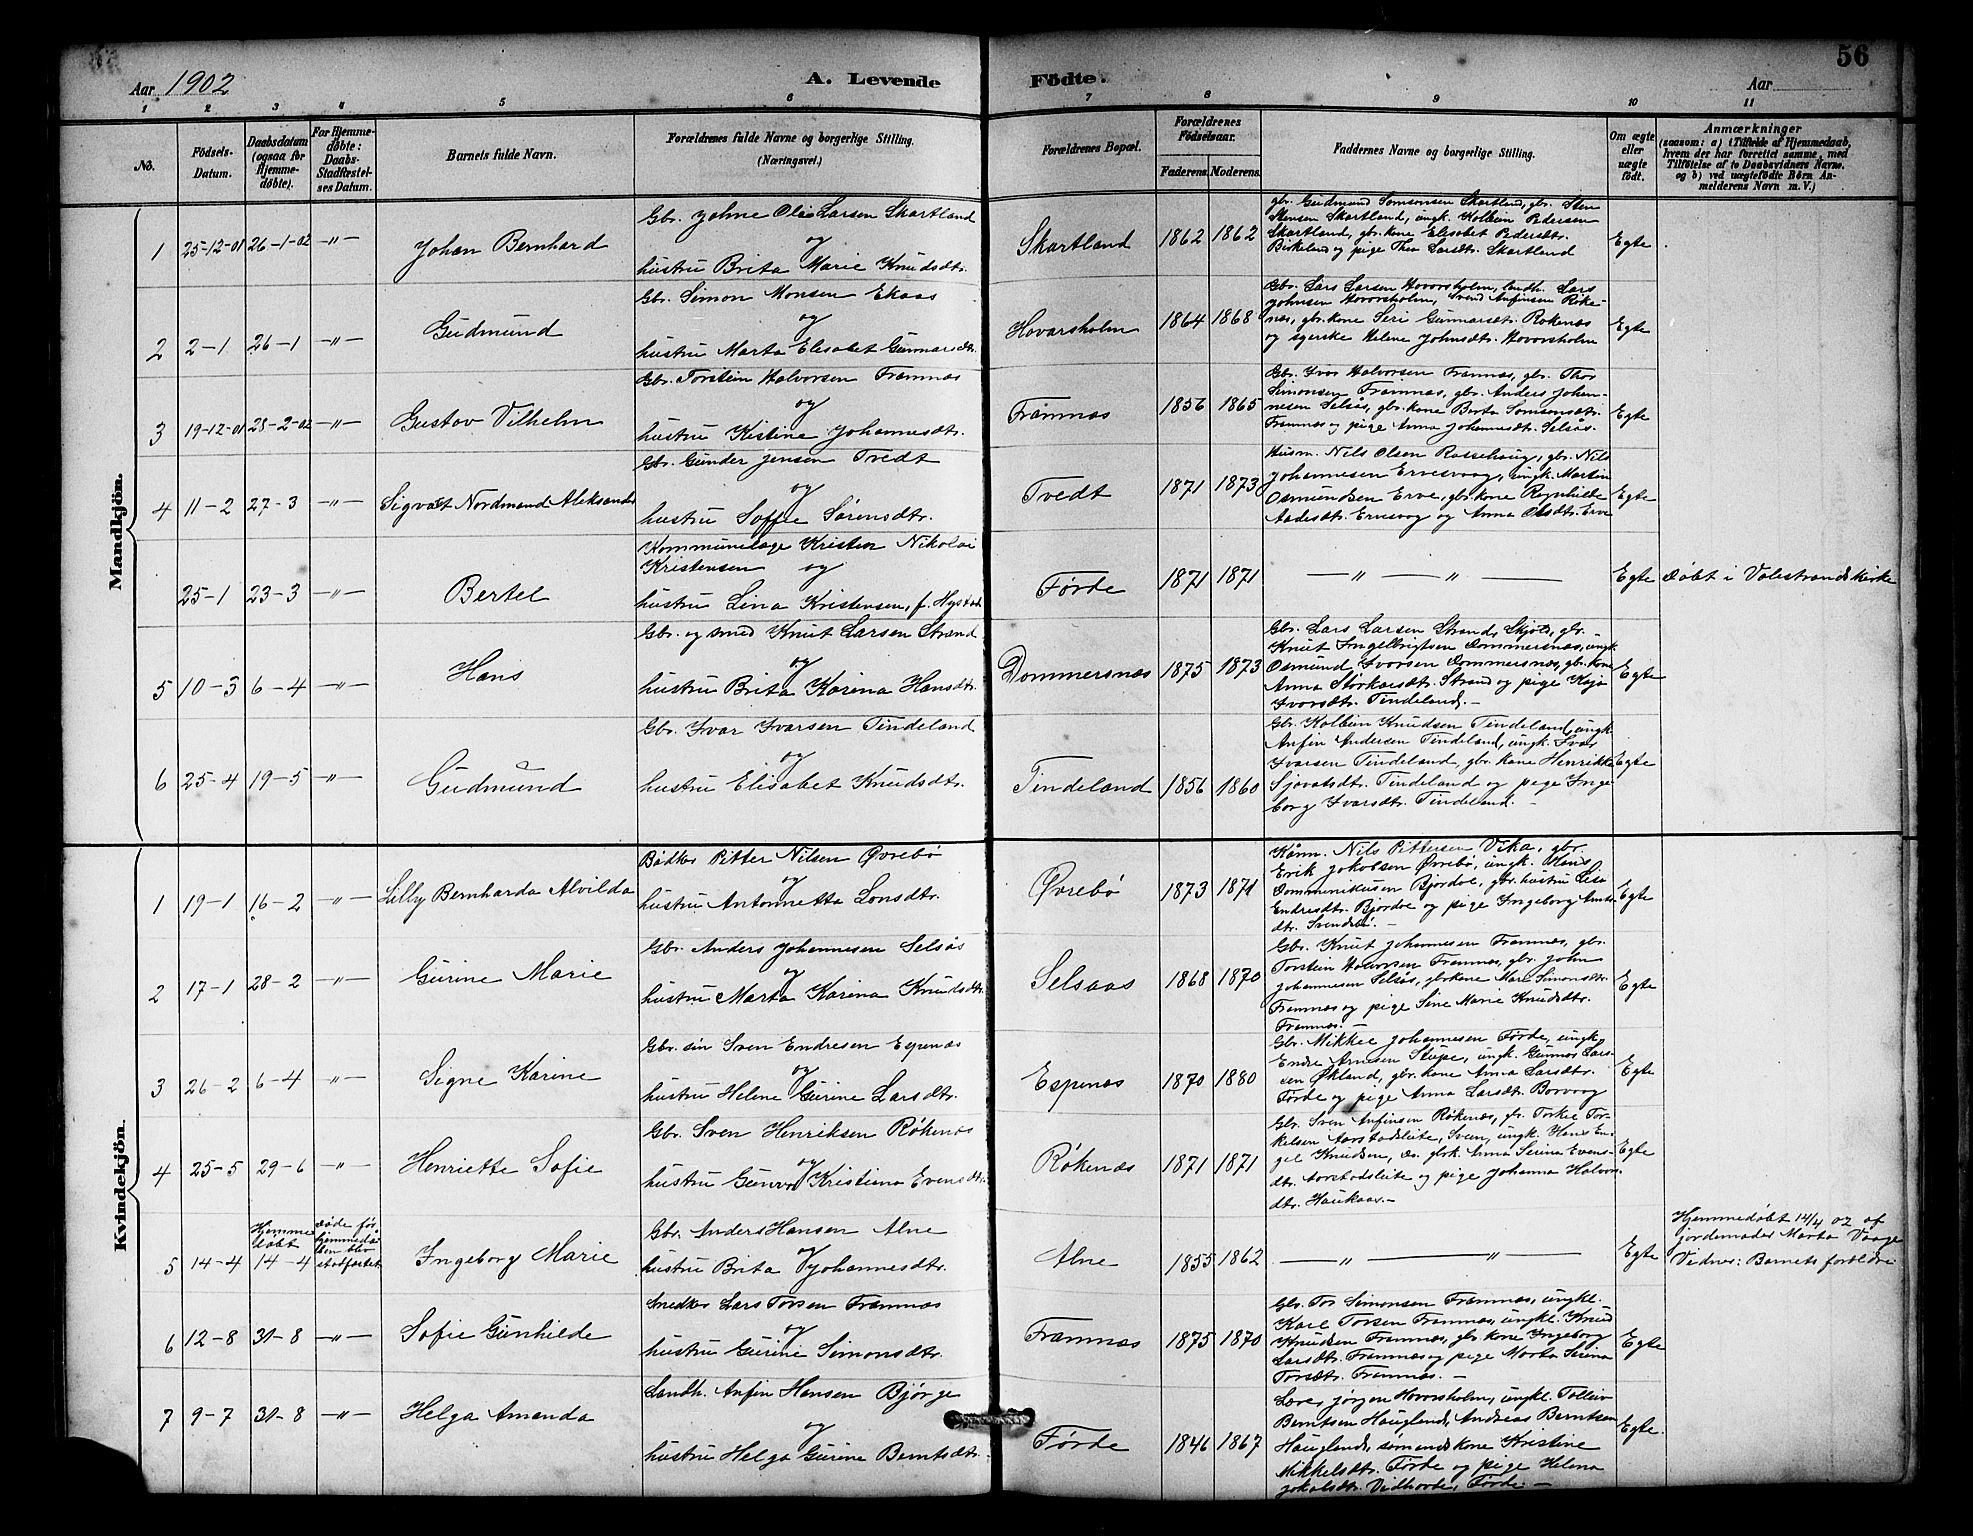 56
Aar 1902
A. Levende
Födte.
Aar
1 2 3 4 5 6 7 8 9 10 11
No.
Födsels-
Datum.
Daabsdatum
(ogsaa for
Hjemme-
døbte).
For Hjemme-
døbte:
Daabs-
Stadfæstel-
ses Datum.
Barnets fulde Navn.
Forældrenes fulde Navne og borgerlige Stilling.
(Næringsvei.)
Forældrenes Bopæl.
Forældrenes
Födselsaar.
Faderens. Moderens.
Faddernes Navne og borgerlige Stilling.
Om ægte
eller
uægte
födt.
Anmærkninger
(saasom: a) i Tilfælde af Hjemmedaab,
hvem der har forrettet samme, med
Tilföielse af to Daabsvidners Navne,
og b) ved uægtefödte Börn An-
melderens Navn m. V.)
Mandkjön.
1 25-12-01 26-1-02 -"- Johan Bernhard
Gbr. Johne Olai Larsen Skartland
og
hustru Brita Marie Knudsdtr.
Skartland 1862 1862
gbr. Gudmund Samsonsen Skartland, gbr. Sten
Stensen Skartland, ungk. Kolbein Pedersen
Skartland, gbr. kone Elisabet Pedersdtr.
Birkeland og pige Thea Larsdtr. Skartland
Egte
2 2-1 26-1 -"- Gudmund
Gbr. Simon Monsen Ekaas
og
hustru Marta Elisabet Gunnarsdtr.
Hovarsholm 1864 1868
Gbr. Lars Larsen Hovorsholm, landh. Lars
Johnsen Hovorsholm, Svend Anfinsen Røke-
næs, gbr. kone Seri Gunnarsdtr. Røkenæs
og syerske Helene Johnsdtr. Hovorsholm
Egte
3 19-12-01 28-2-02 -"- Gustav Vilhelm
Gbr. Torstein Halvorsen Framnæs
og
hustru Kistine Johannesdtr.
Framnæs 1856 1865
Gbr. Ivar Halvorsen Framnæs, gbr. Thor
Simonsen Framnæs, gbr. Anders Johan-
nesen Selsås, gbr. kone Berta Samsonsdtr.
Framnæs og pige Anna Johannesdtr. Selsås.
Egte
4 11-2 27-3 -"- Sigvart Nordmand Aleksander
Gbr. Gunder Jensen Tvedt
og
hustru Soffie Sørensdtr.
Tvedt 1871 1873
Husm. Nils Olsen Rossehaug, gbr. Nils
Johannesen Ervesvaag, ungk. Martin
Osmundsen Erve, gbr. kone Rognhilde
Aadesdtr. Ervesvog og Anna Olsdtr. Erve
Egte
25-1 23-3 -"- Bertel
Kommunelæge Kristen Nikolai
Kristensen og
hustru Lina Kristensen, f. Hystad
Førde 1871 1871
-"- -"-
Egte døbt i Valestrandskirke
5 10-3 6-4 -"- Hans
Gbr. og smed Knut Larsen Strand
og
hustru Brita Karina Hansdtr.
Dommersnæs 1875 1873
Gbr. Lars Larsen Strand, Skjold, gbr.
Knut Ingelbrigtsen Dommersnæs, ungk.
Osmund Ivorsen Dommersnæs, gbr. kone
Anna Storkarsdtr. Strand og pige Kaja
Ivorsdtr. Tindeland.-
Egte
6 25-4 19-5 -"- Gudmund
Gbr. Ivar Ivarsen Tindeland
og
hustru Elisabet Knudsdtr.
Tindeland 1856 1860
Gbr. Kolbein Knudsen Tindeland, ungk.
Anfin Andersen Tindeland, ungk. Ivar
Ivarsen Tindeland, gbr. kone Henrikke
Sjovatsdtr. Tindeland og pige Inge-
borg Ivarsdtr. Tindeland.-
Egte
Kvindekjön.
1 19-1 16-2 -"- Lilly Bernharda Alvilda
Bødker Pitter Nilsen Øvrebø
og
hustru Antonnetta Lonsdtr.
Øvrebø 1873 1871
Kårm. Nils Pittersen Vika, gbr.
Erik Jakobsen Øvrebø, ungk. Hans
Domminikusen Bjordoe, gbr. hustru Lisa
Endresdtr. Bjordoe og pige Ingeborg Ants-
dtr. Svendsbø.-
Egte
2 17-1 28-2 -"- Gurine Marie
Gbr. Anders Johannesen Selsås
og
hustru Marta Karina Knudsdtr.
Selsaas 1868 1870
Gbr. Knut Johannesen Framnæs, gbr.
Torstein Halvorsen Framnæs, gbr. John
Johannesen Selsås, gbr. kone Mari Simonsdtr.
Framnæs og pige Sine Marie Knudsdtr.
Framnæs.
Egte
3 26-2 6-4 -"- Signe Karine
Gbr. søn Sven Endresen Espenæs
og
hustru Helene Gurine Larsdtr.
Espenæs 1870 1880
Gbr. Mikkel Johannesen Førde, ungk.
Endre Arnesen Stupe, ungk. Gunnar Lars-
sen Økland, gbr. kone Anna Larsdtr.
Førde og pige Anna Larsdtr. Borvog
Egte
4 25-5 29-6 -"- Henriette Sofie
Gbr. Sven Henriksen Røkenæs
og
hustru Gunvor Kristiana Evensdtr.
Røkenæs 1871 1871
Gbr. Sven Anfinsen Røkenæs, gbr. Torkel Tor-
kelsen Aarstadsleite, Sveen, ungk. Hans En-
gel Knudsen, do. gbrk. Anna Serina Evens-
dtr. Aarstadsleite og pige Johanna Halvor-
dtr. Haukaas.-
Egte
5 14-4 Hjemme
døbt
14-4
døde før
hjemmedå-
ben blev
stadfæstet
Ingeborg Marie
Gbr. Anders Hansen Alne
og
hustru Brita Johannesdtr.
Alne 1855 1862
-"- -"-
Egte
Hjemmedøbt 14/4 02 af
jordemoder Marta Vaage
Vidner: Barnets forældre
6 12-8 31-8 -"- Sofie Gunhilde
Snedker Lars Torsen Framnæs
og
hustru Gurine Simonsdtr.
Framnæs 1875 1870
Gbr. Tor Simonsen Framnæs, ungk.
Karl Torsen Framnæs, ungk. Knud
Knudsen Framnæs, gbr. kone Ingeborg
Larsdtr. Framnæs og pige Marta Serina
Torsdtr. Framnæs.-
Egte
7 9-7 31-8 -"- Helga Amanda
Landh. Anfin Hansen Bjørge
og
hustru Helga Gurine Berntsdtr.
Førde 1846 1867
Lars Jørgen Hovorsholm, ungk. Tolleiv
Berntsen Haugland, Andreas Berntsen
Haugland, sømandskone Kristine
Mikkelsdtr. Førde og pige Helena
Jakobsdtr. Vidhovde, Førde.-
Egte.